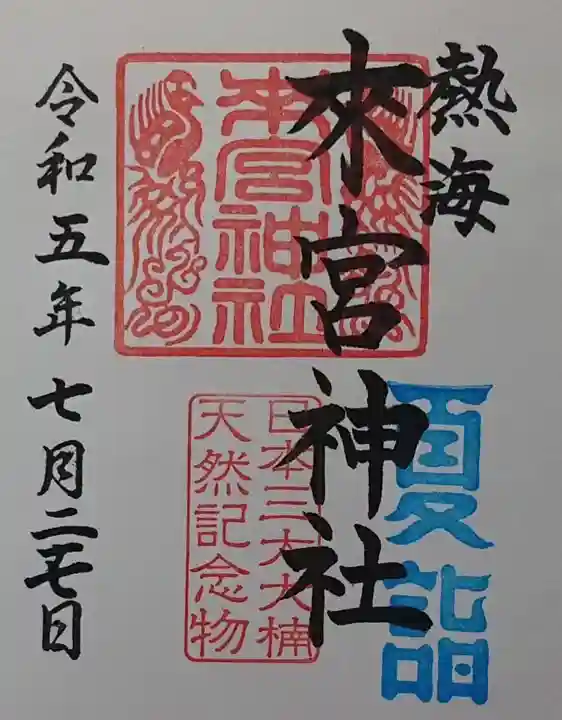 熱海
來宮神社
夏詣
來宮神社
日本三大大楠
天然記念物
令和五年七月二十七日